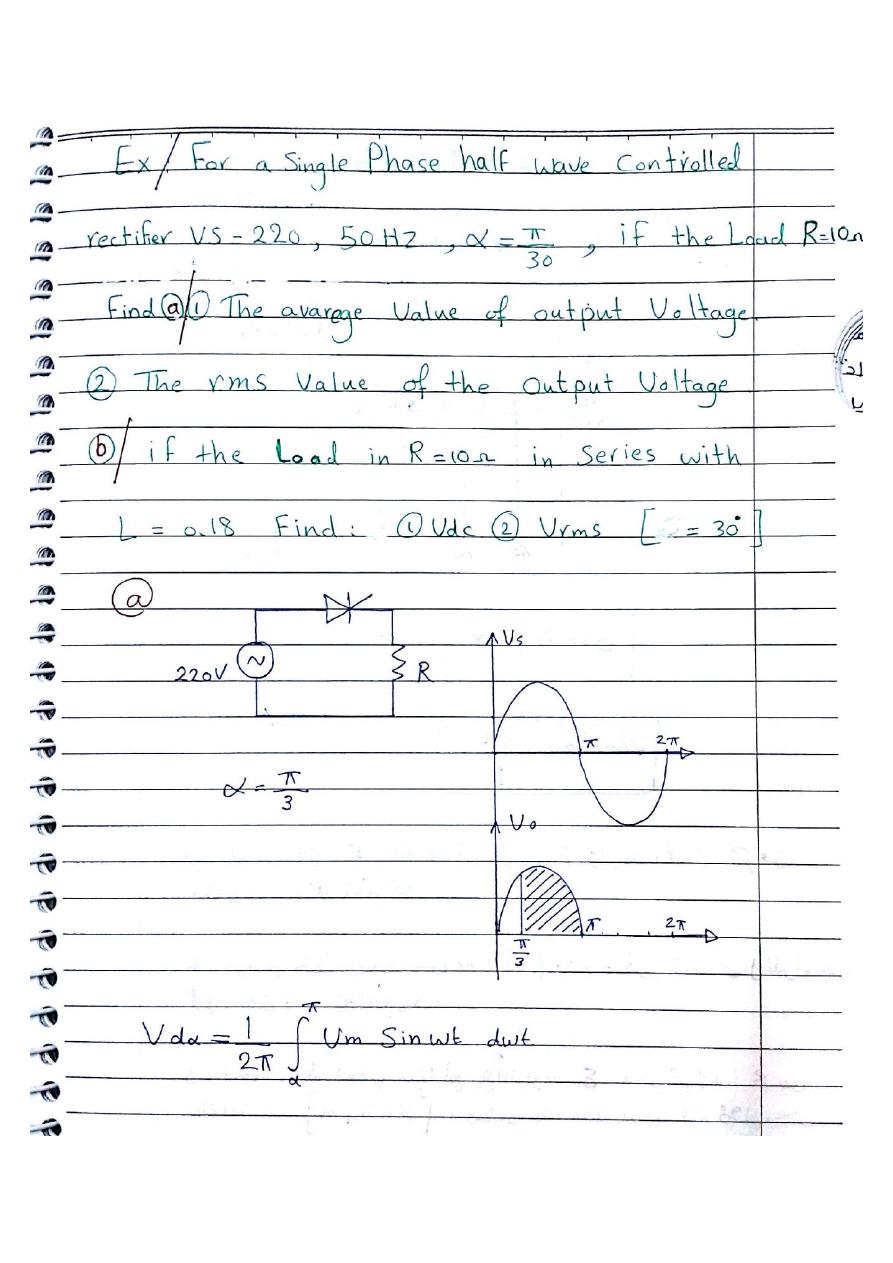 Ex/ For a Single Phase half wave Controlled
rectifier VS - 220, 50 HZ, α = π/30, if the Load R=10Ω
Find ⓐ/① The avarage Value of output Voltage.
② The rms Value of the output Voltage
ⓑ/ if the Load in R=10Ω in Series with
L = 0.18 Find: ① Vdc ② Vrms [ = 30°]
ⓐ
220V R
Vs
π 2π
α = π/3
Vo
π 2π
π/3
Vdα = 1/2π ∫α^π Vm Sin wt dwt